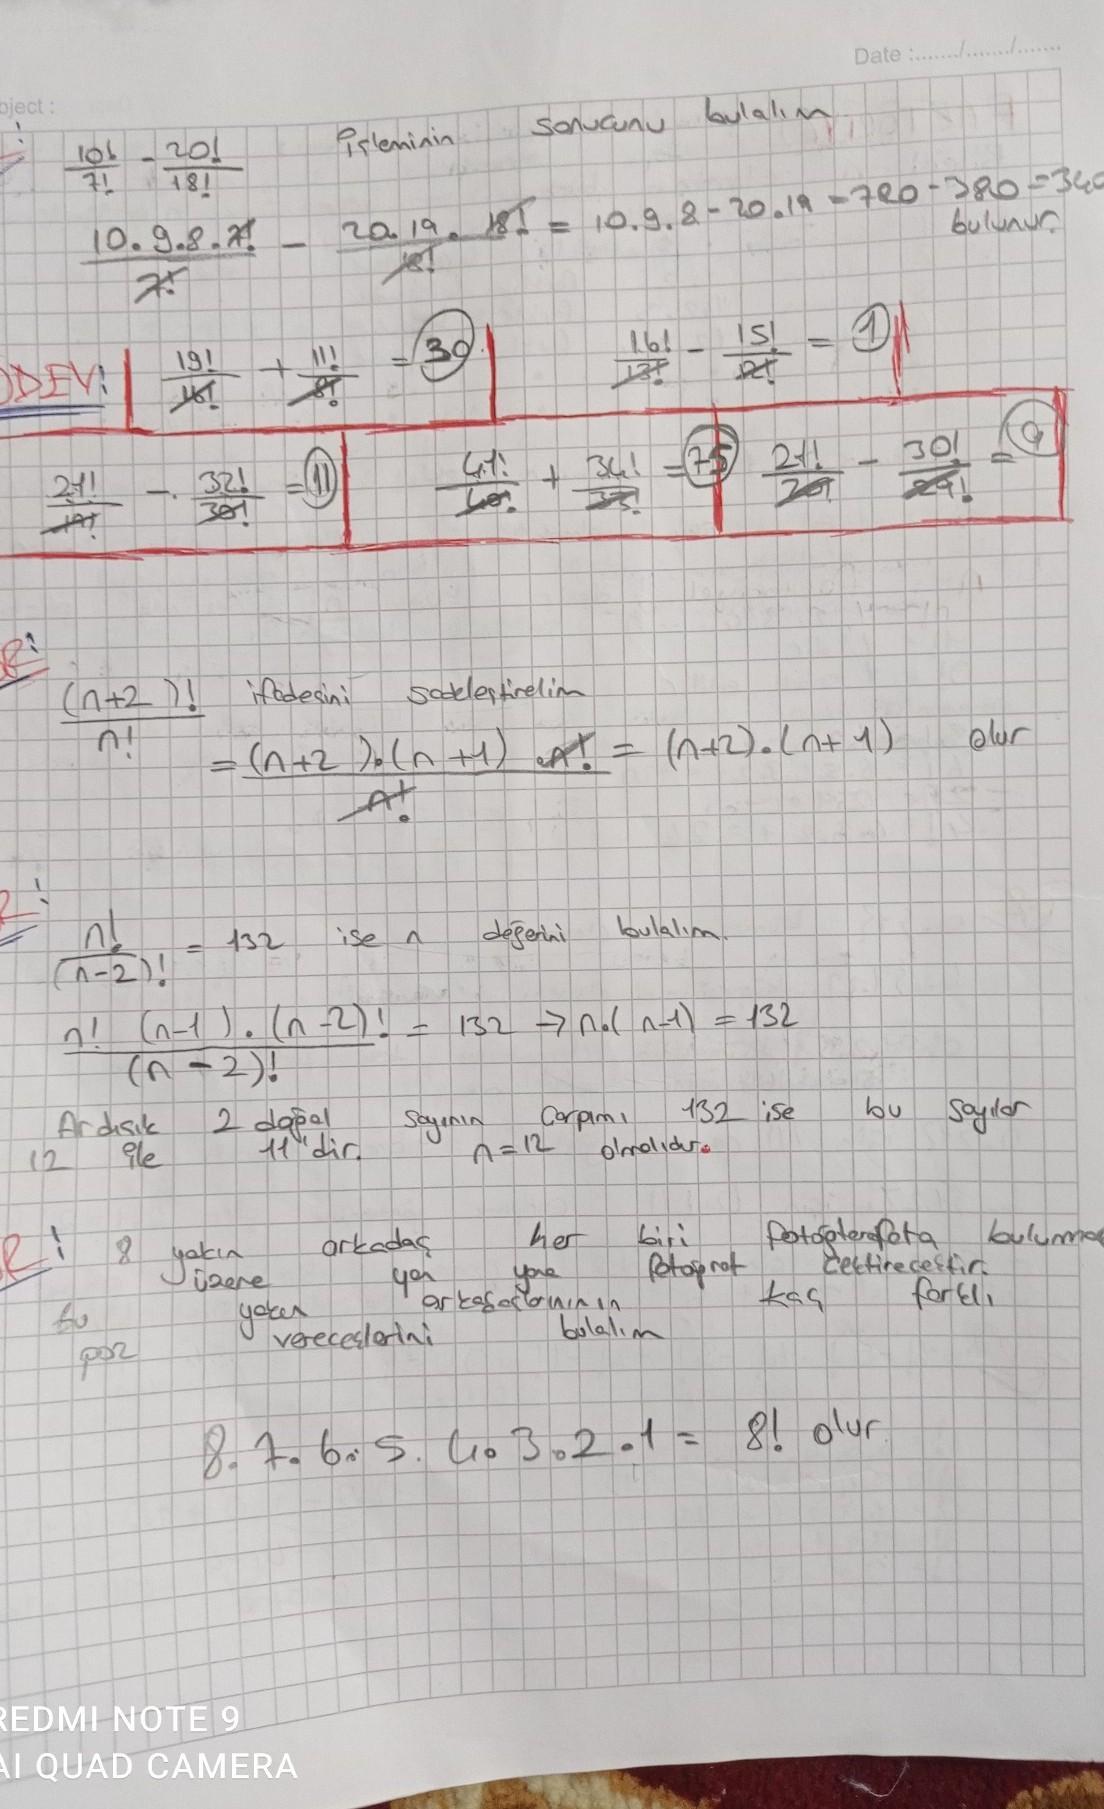 Date :......./......./.......
bject :
10!/7! - 20!/18! işleminin sonucunu bulalım
10.9.8.7!/7! - 20.19.18!/18! = 10.9.8-20.19=720-380=340
bulunur.
ÖDEV! 19!/16! + 11!/8! = 30 16!/13! - 15!/12! = 1
21!/19! - 32!/30! = 11 41!/40! + 34!/33! = 75 21!/20! - 30!/29! = 9
R:
(n+2)!/n! ifadesini sadeleştirelim
= (n+2).(n+1).n!/n! = (n+2).(n+1) olur
R:
n!/(n-2)! = 132 ise n değerini bulalım.
n! (n-1).(n-2)!/(n-2)! = 132 → n.(n-1) = 132
Ardışık 2 doğal sayının çarpımı 132 ise bu sayılar
12 ile 11'dir. n=12 olmalıdır.
R: 8 yakın arkadaş her biri bulunma
üzere yan yana çektirecektir.
bu yakın kaç farklı
poz vereceklerini bulalım
8.7.6.5.4.3.2.1 = 8! olur.
REDMI NOTE 9
AI QUAD CAMERA